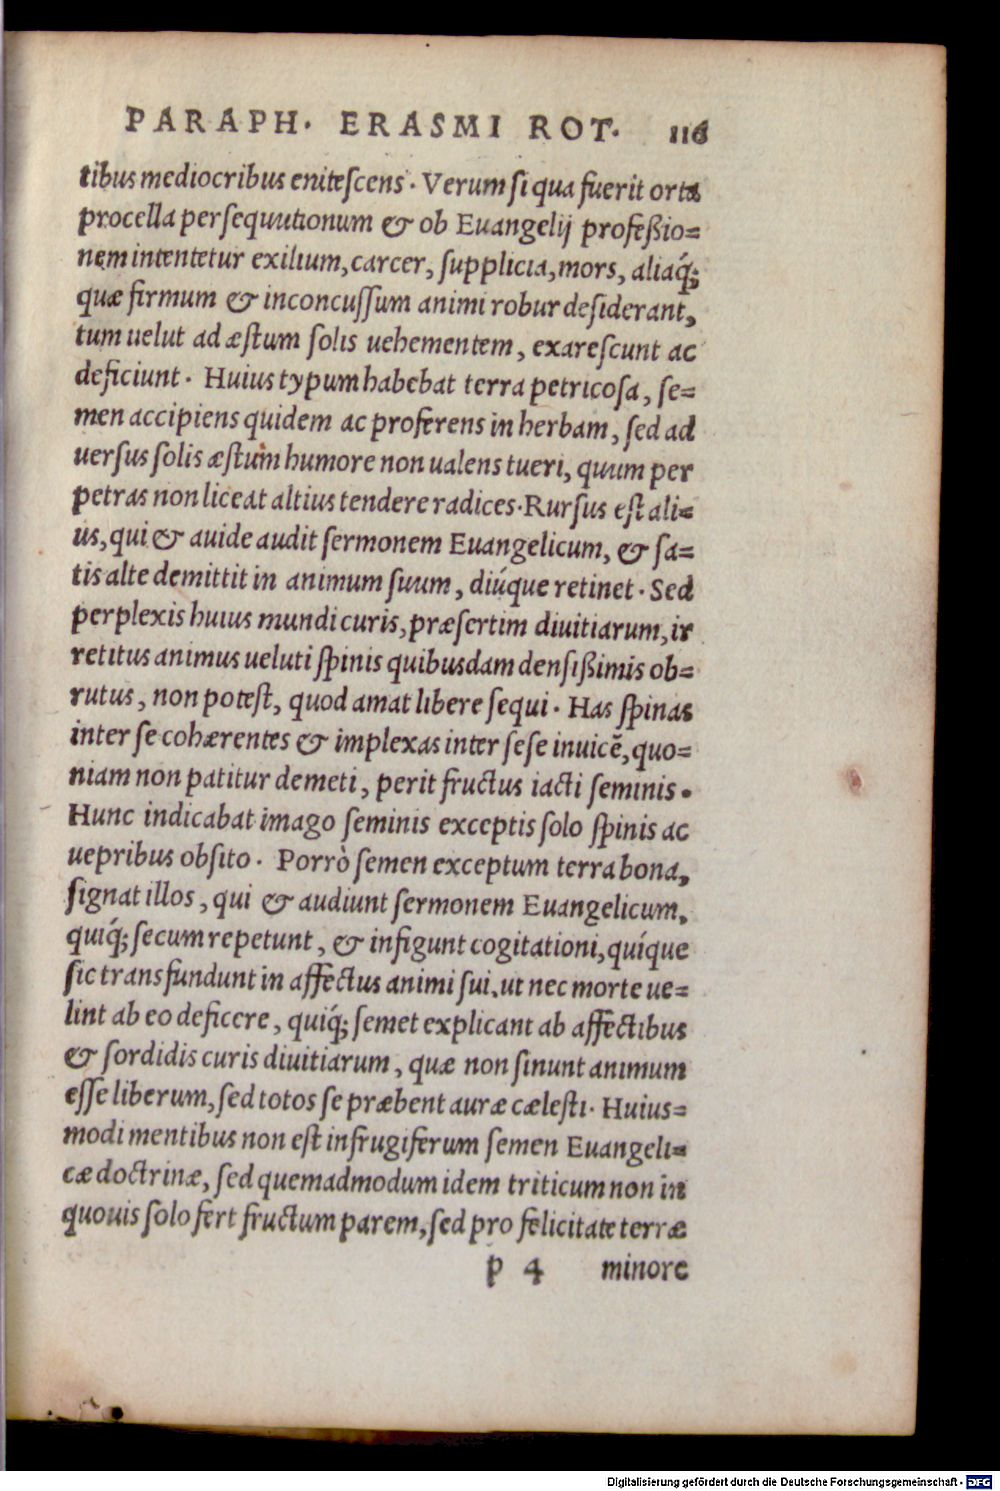 PARAPH. ERASMI ROT. 116
tibus mediocribus enitescens. Verum si qua fuerit orta
procella persequutionum & ob Euangelij profeßio=
nem intentetur exilium, carcer, supplicia, mors, aliaq́;
quæ firmum & inconcussum animi robur desiderant,
tum uelut ad æstum solis uehementem, exarescunt ac
deficiunt. Huius typum habebat terra petricosa, se=
men accipiens quidem ac proferens in herbam, sed ad
uersus solis æstum humore non ualens tueri, quum per
petras non liceat altius tendere radices. Rursus est ali=
us, qui & auide audit sermonem Euangelicum, & sa=
tis alte demittit in animum suum, diúque retinet. Sed
perplexis huius mundi curis, præsertim diuitiarum, ir
retitus animus ueluti spinis quibusdam densißimis ob=
rutus, non potest, quod amat libere sequi. Has spinas
inter se cohærentes & implexas inter sese inuicē, quo=
niam non patitur demeti, perit fructus iacti seminis.
Hunc indicabat imago seminis exceptis solo spinis ac
uepribus obsito. Porrò semen exceptum terra bona,
signat illos, qui & audiunt sermonem Euangelicum,
quiq́; secum repetunt, & infigunt cogitationi, quíque
sic transfundunt in affectus animi sui, ut nec morte ue=
lint ab eo deficere, quiq́; semet explicant ab affectibus
& sordidis curis diuitiarum, quæ non sinunt animum
esse liberum, sed totos se præbent auræ cælesti. Huius=
modi mentibus non est infrugiferum semen Euangeli=
cæ doctrinæ, sed quemadmodum idem triticum non in
quouis solo fert fructum parem, sed pro felicitate terræ
p 4 minore
Digitalisierung gefördert durch die Deutsche Forschungsgemeinschaft - DFG